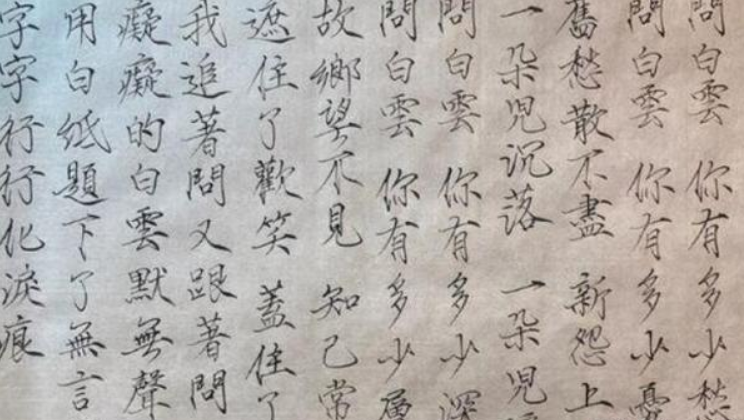 問白雲 你有多少愁
問白雲 你有多少憂
舊愁散不盡 新怨上
一朵兒沉落 一朵兒
問白雲 你有多少深
問白雲 你有多少
故鄉望不見 知己常
遮住了歡笑 蓋住了
我追著問又跟著問
癡癡的白雲默無聲
用白紙題下了無言
字字行行化淚痕